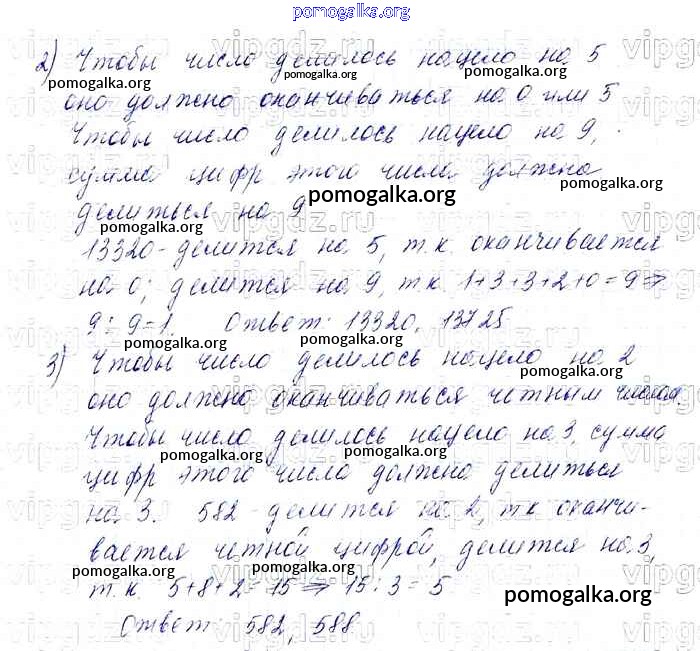 pomogalka.org
2) Чтобы число делилось нацело на 5
pomogalka.org pomogalka.org pomogalka.org
оно должно оканчиваться на 0 или 5
Чтобы число делилось нацело на 9,
сумма цифр этого числа должно
pomogalka.org pomogalka.org
делиться на 9
pomogalka.org
13320 - делится на 5, т.к. оканчивается
на 0; делится на 9, т.к 1+3+3+2+0=9 ⇒
9 : 9=1. Ответ: 13320, 13725
pomogalka.org pomogalka.org
3) Чтобы число делилось нацело на 2
pomogalka.org
оно должно оканчиваться четным числом.
Чтобы число делилось нацело на 3, сумма
pomogalka.org pomogalka.org
цифр этого числа должно делиться
на 3. 582 - делится на 2, т.к оканчи-
вается четной цифрой, делится на 3,
pomogalka.org pomogalka.org
т.к. 5+8+2=15 ⇒ 15:3=5
pomogalka.org
Ответ: 582, 588
vipgdz.ru